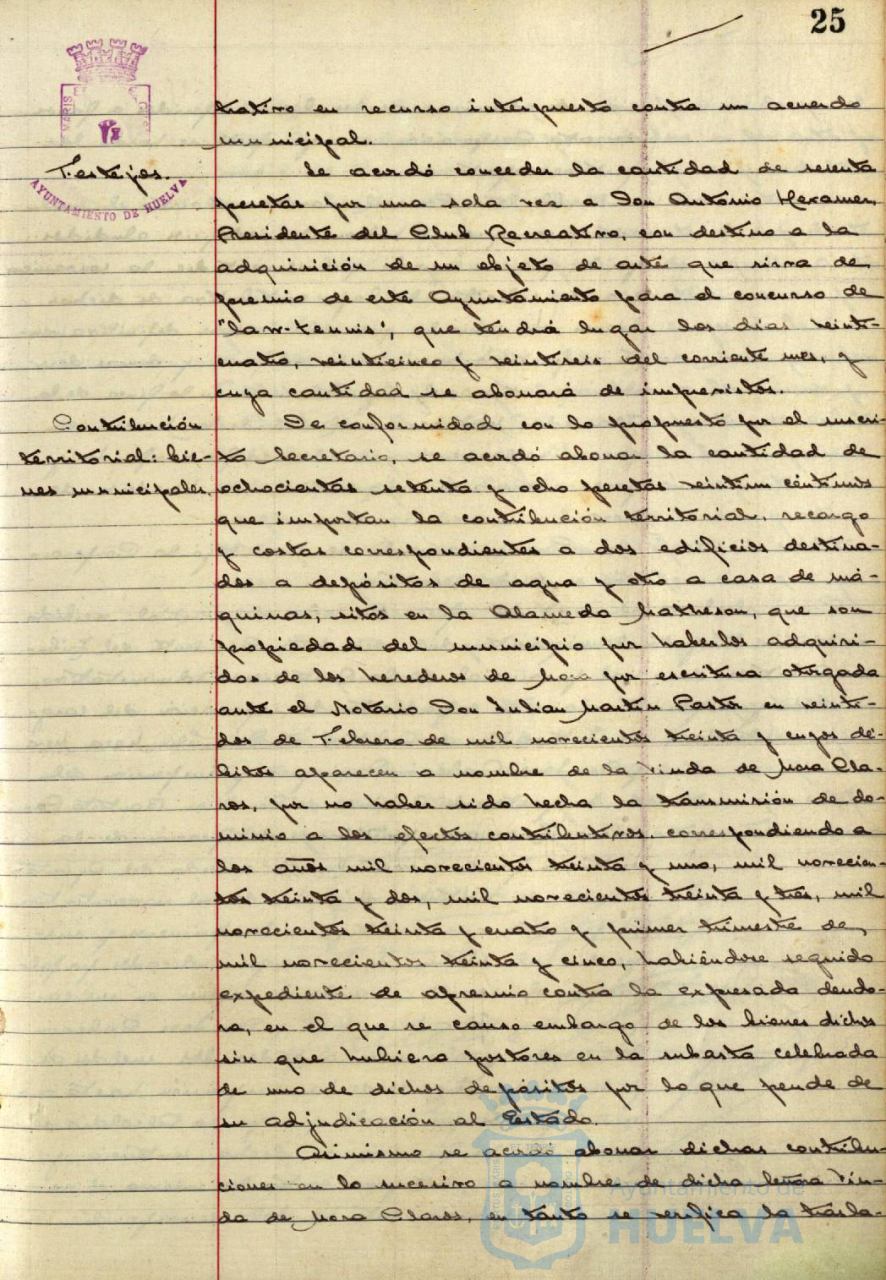 25
trativo en recurso interpuesto contra un acuerdo
municipal.
Festejos.
AYUNTAMIENTO DE HUELVA
Se acordó conceder la cantidad de sesenta
pesetas por una sola vez a Don Antonio
Presidente del Club Recreativo, con destino a la
adquisición de un objeto de arte que sirva de
premio de este Ayuntamiento para el concurso de
"law-tennis", que tendrá lugar los días veinti-
cuatro, veinticinco y veintiseis del corriente mes, y
cuya cantidad se abonará de imprevistos.
Contribución
territorial: bie-
nes municipales.
De conformidad con lo propuesto por el infrascri-
to Secretario, se acordó abonar la cantidad de
ochocientas setenta y ocho pesetas veintiun céntimos
que importan la contribución territorial, recargo
y costas correspondientes a dos edificios destina-
dos a depósitos de agua y otro a casa de má-
quinas, sitos en la Alameda Matheson, que son
propiedad del municipio por haberlos adquiri-
dos de los herederos de Mora por escritura otorgada
ante el Notario Don Julian Martin Pastor en veinti-
dos de Febrero de mil novecientos treinta y cuyos dé-
bitos aparecen a nombre de la Viuda de Mora Cla-
ros, por no haber sido hecha la transmisión de do-
minio a los efectos contributivos, correspondiendo a
los años mil novecientos treinta y uno, mil novecien-
tos treinta y dos, mil novecientos treinta y tres, mil
novecientos treinta y cuatro y primer trimestre de
mil novecientos treinta y cinco, habiéndose seguido
expediente de apremio contra la expresada deudo-
ra, en el que se causó embargo de los bienes dichos
sin que hubiera postores en la subasta celebrada
de uno de dichos depósitos por lo que pende de
su adjudicación al Estado.
Asimismo se acordó abonar dichas contribu-
ciones en lo sucesivo a nombre de dicha Señora Viu-
da de Mora Claros, en tanto se verifica la trasla-
Ayuntamiento de
HUELVA